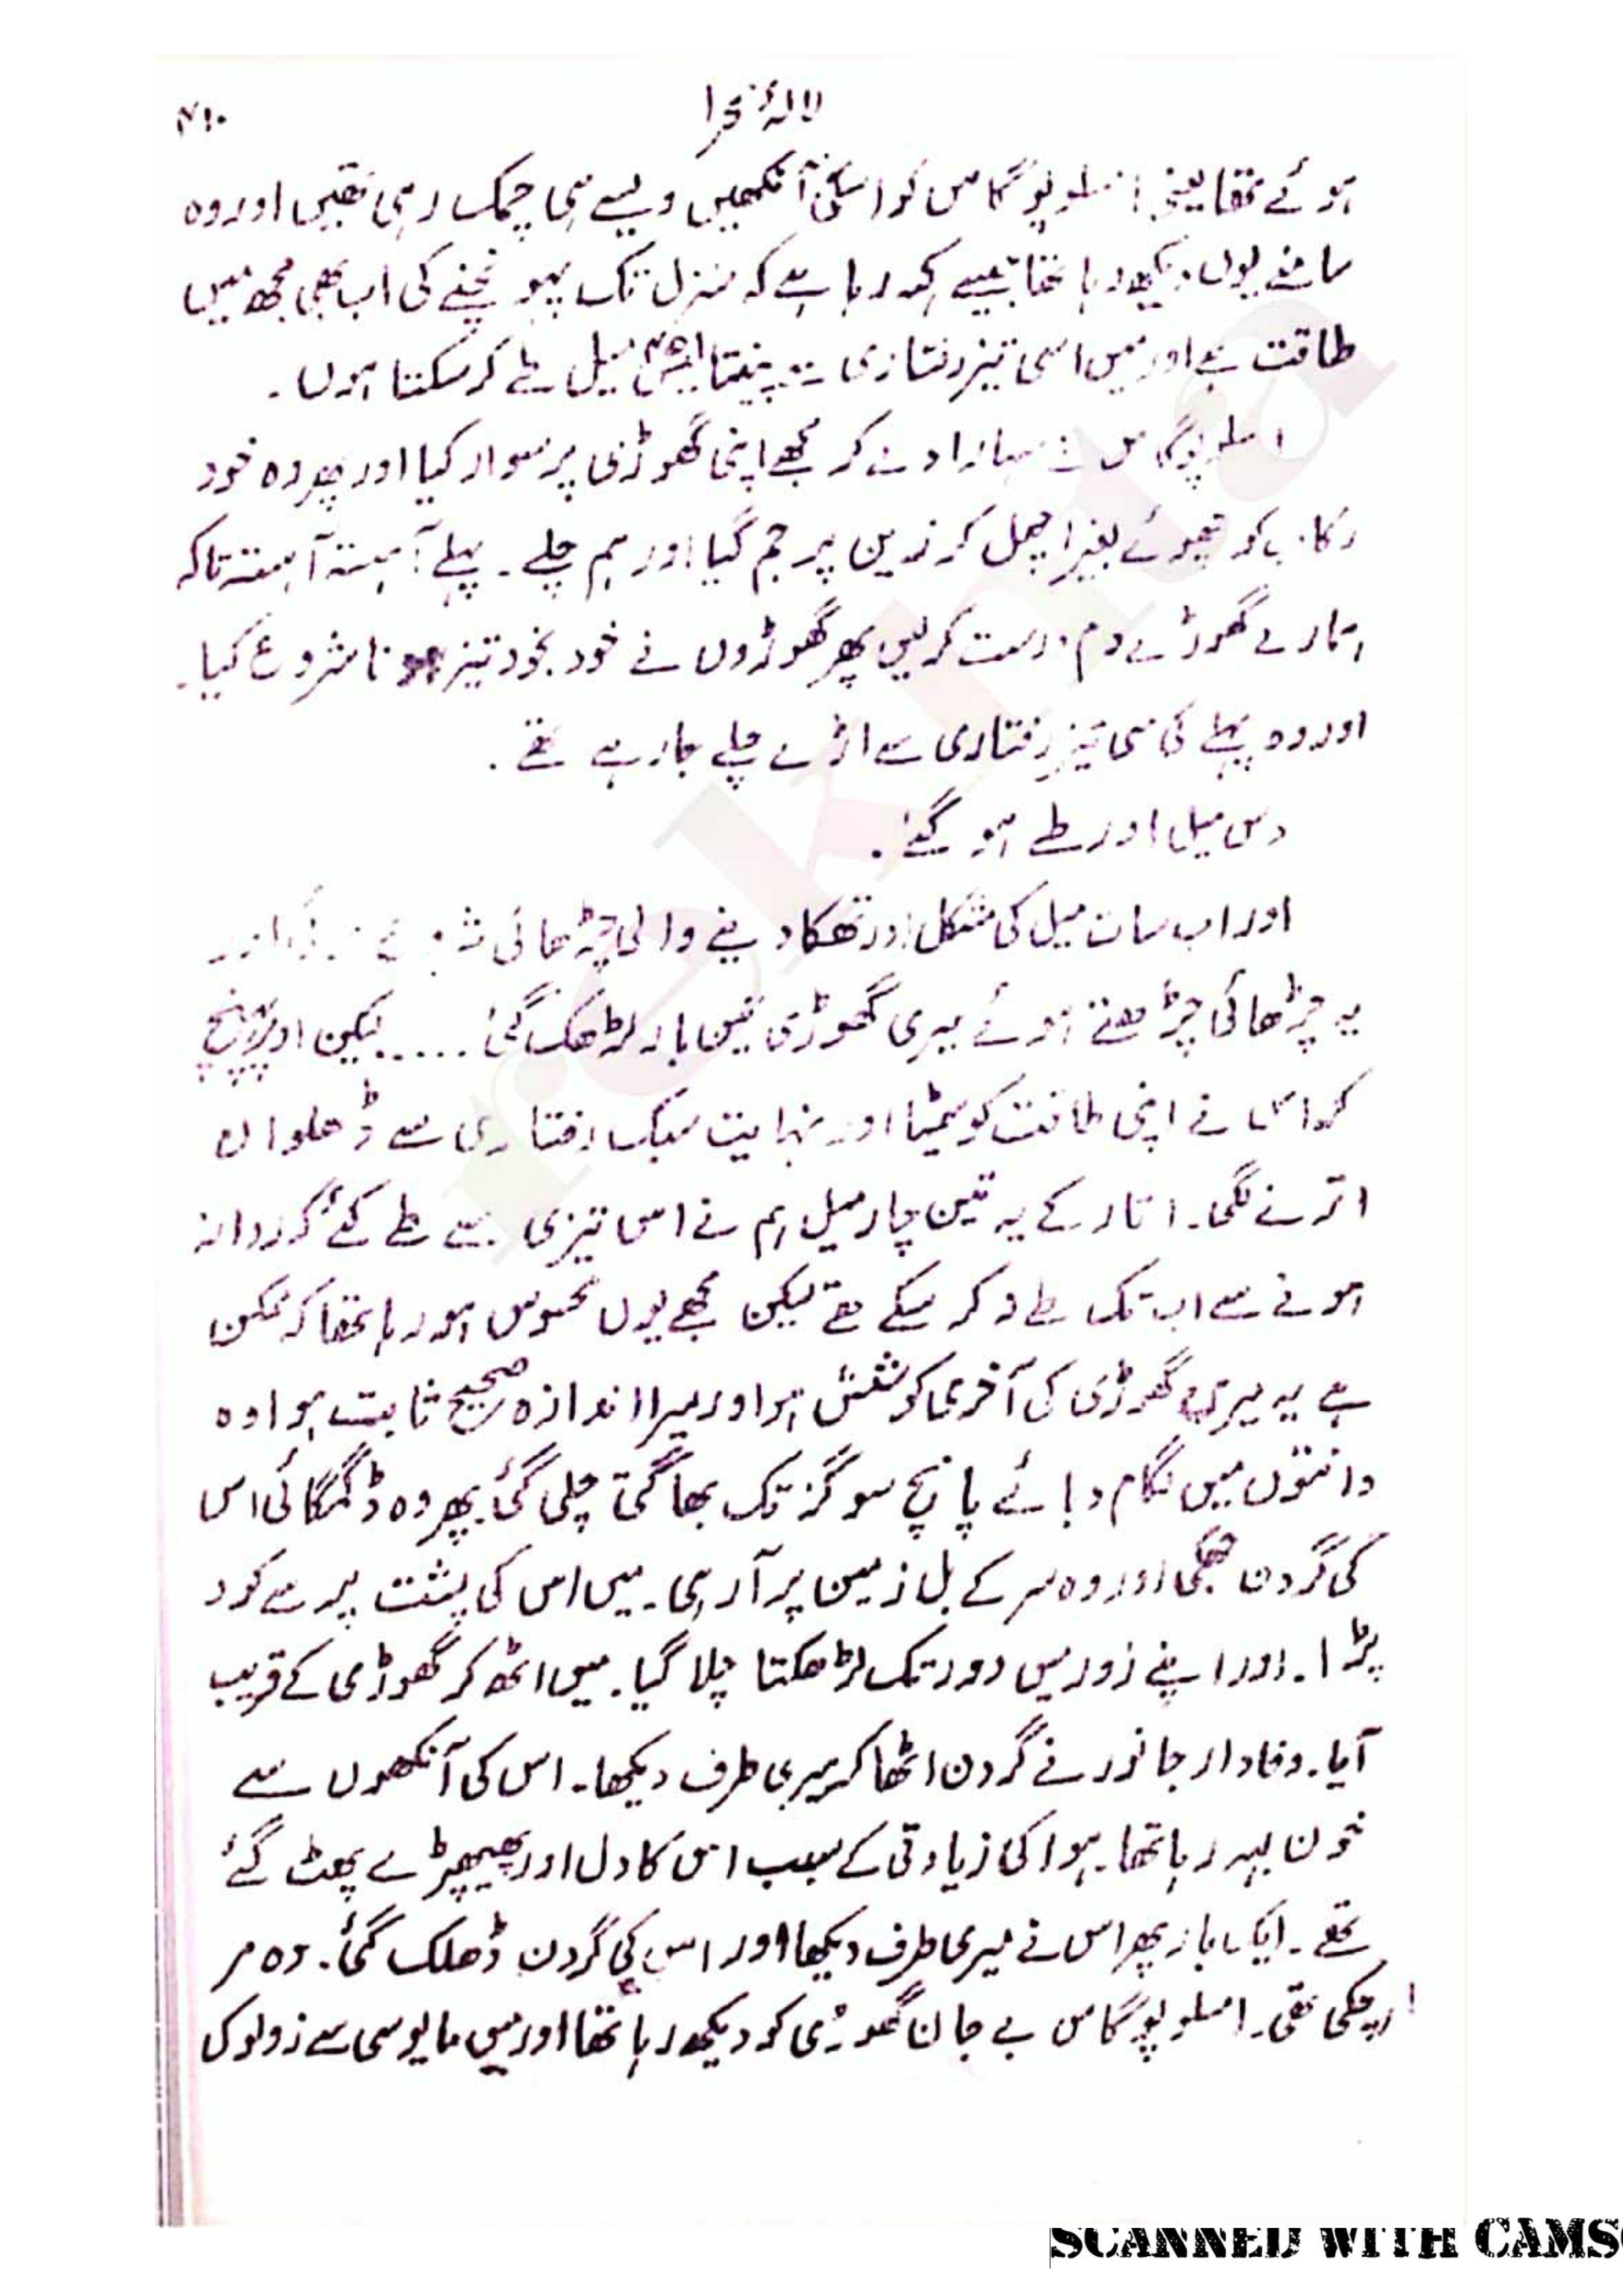 لالۂ صحرا
۴۱۰
ہوئے تھا لیکن املوپوگاس کو اسکی آنکھیں ویسے ہی چمک رہی تھیں اور وہ
سامنے یوں دیکھ رہا تھا جیسے کہہ رہا ہے کہ منزل تک پہونچنے کی اب بھی مجھ میں
طاقت ہے اور میں اسی تیز رفتاری سے پینتالیس میل طے کر سکتا ہوں۔
املوپوگاس نے سہارا دے کر مجھے اپنی گھوڑی پر سوار کیا اور پھر وہ خود
رکاب کو چھوئے بغیر اچھل کر زین پر جم گیا اور ہم چلے۔ پہلے آہستہ آہستہ تاکہ
ہمارے گھوڑے دم درست کر لیں پھر گھوڑوں نے خود بخود تیز ہونا شروع کیا۔
اور وہ پہلے کی سی تیز رفتاری سے اڑے چلے جا رہے تھے۔
دس میل اور طے ہو گئے۔
اور اب سات میل کی مشکل اور تھکا دینے والی چڑھائی
یہ چڑھائی چڑھتے ہوئے میری گھوڑی تین بار لڑھک گئی ..... لیکن اوپر پہونچ
کر اس نے اپنی طاقت کو سمیٹا اور نہایت سبک رفتاری سے ڈھلوان
اترنے لگی۔ اتار کے یہ تین چار میل ہم نے اس تیزی سے طے کئے کہ روانہ
ہونے سے اب تک طے نہ کر سکے تھے لیکن مجھے یوں محسوس ہو رہا تھا کہ ممکن
ہے یہ میری گھوڑی کی آخری کوشش ہو اور میرا اندازہ صحیح ثابت ہوا وہ
دانتوں میں لگام دبائے پانچ سو گز تک بھاگتی چلی گئی۔ پھر وہ ڈگمگائی اس
کی گردن جھکی اور وہ سر کے بل زمین پر آ رہی۔ میں اس کی پشت پر سے کود
پڑا۔ اور اپنے زور میں دور تک لڑھکتا چلا گیا۔ میں اٹھ کر گھوڑی کے قریب
آیا۔ وفادار جانور نے گردن اٹھا کر میری طرف دیکھا۔ اس کی آنکھوں سے
خون بہہ رہا تھا۔ ہوا کی زیادتی کے سبب اس کا دل اور پھیپھڑے پھٹ گئے
تھے۔ ایک بار پھر اس نے میری طرف دیکھا اور اس کی گردن ڈھلک گئی۔ وہ مر
چکی تھی۔ املوپوگاس بے جان گھوڑی کو دیکھ رہا تھا اور میں مایوسی سے زولوک
rekhta
SCANNED WITH CAMS